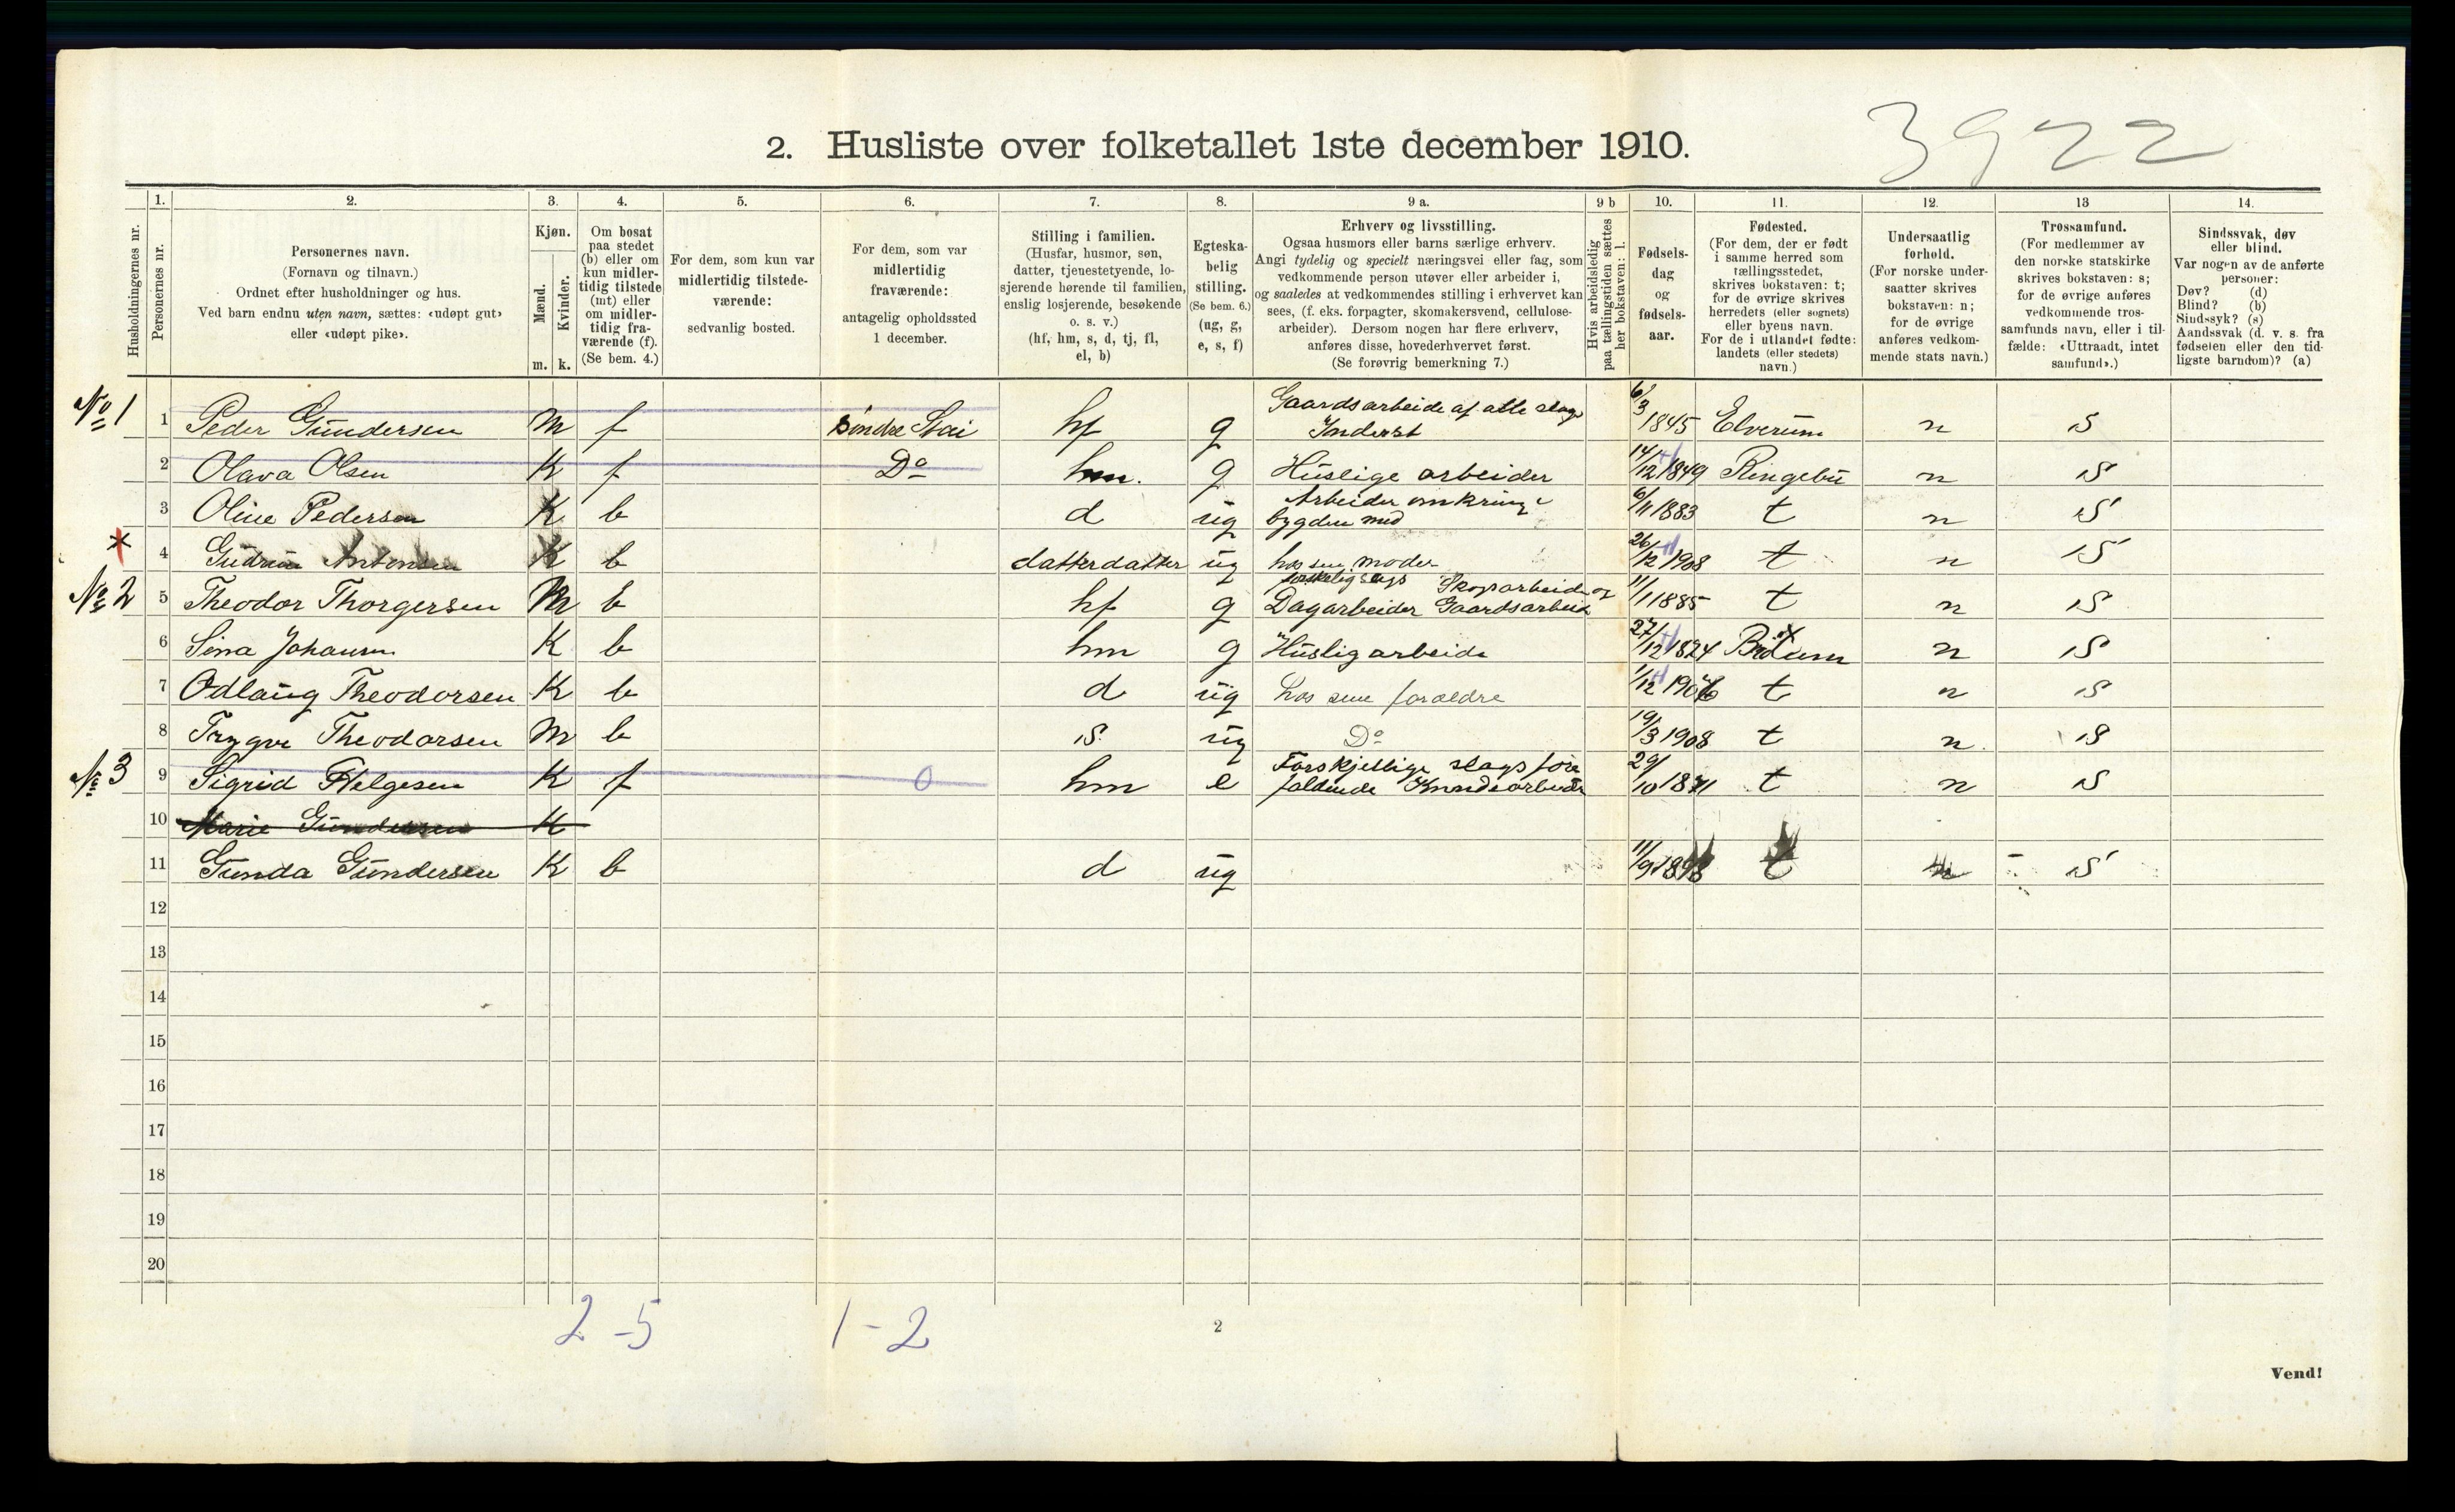 3922
2. Husliste over folketallet 1ste december 1910.
Husholdningernes nr.
1. Personernes nr.
2. Personernes navn. (Fornavn og tilnavn.) Ordnet efter husholdninger og hus. Ved barn endnu uten navn, sættes: «udøpt gut» eller «udøpt pike».
3. Kjøn. Mænd. m. Kvinder. k.
4. Om bosat paa stedet (b) eller om kun midlertidig tilstede (mt) eller om midlertidig fraværende (f). (Se bem. 4.)
5. For dem, som kun var midlertidig tilstedeværende: sedvanlig bosted.
6. For dem, som var midlertidig fraværende: antagelig opholdssted 1 december.
7. Stilling i familien. (Husfar, husmor, søn, datter, tjenestetyende, losjerende hørende til familien, enslig losjerende, besøkende o. s. v.) (hf, hm, s, d, tj, fl, el, b)
8. Egteskabelig stilling. (Se bem. 6.) (ug, g, e, s, f)
9 a. Erhverv og livsstilling. Ogsaa husmors eller barns særlige erhverv. Angi tydelig og specielt næringsvei eller fag, som vedkommende person utøver eller arbeider i, og saaledes at vedkommendes stilling i erhvervet kan sees, (f. eks. forpagter, skomakersvend, cellulosearbeider). Dersom nogen har flere erhverv, anføres disse, hovederhvervet først. (Se forøvrig bemerkning 7.)
9 b Hvis arbeidsledig paa tællingstiden sættes her bokstaven: l.
10. Fødselsdag og fødselsaar.
11. Fødested. (For dem, der er født i samme herred som tællingsstedet, skrives bokstaven: t; for de øvrige skrives herredets (eller sognets) eller byens navn. For de i utlandet fødte: landets (eller stedets) navn.)
12. Undersaatlig forhold. (For norske undersaatter skrives bokstaven: n; for de øvrige anføres vedkommende stats navn.)
13 Trossamfund. (For medlemmer av den norske statskirke skrives bokstaven: s; for de øvrige anføres vedkommende trossamfunds navn, eller i tilfælde: «Uttraadt, intet samfund».)
14. Sindssvak, døv eller blind. Var nogen av de anførte personer: Døv? (d) Blind? (b) Sindssyk? (s) Aandssvak (d. v. s. fra fødselen eller den tidligste barndom)? (a)
No 1 1 Peder Gundersen M f Søndre Stai hf g Gaardsarbeide af alle slags Inderst 6/3 1845 Elverum n S
2 Olava Olsen K f Do hm. g Huslige arbeider 14/12 1849 Ringebu n S
3 Oline Pedersen K b d ug Arbeider omkring i bygden med 6/11 1883 t n S
x 4 Gudrun Antonsen K b datterdatter ug hos sin moder 26/12 1908 t n S
No 2 5 Theodor Thorgersen M b hf g forskelig slags Dagarbeider Skogsarbeide og Gaardsarbeide 11/1 1885 t n S
6 Sina Johansen K b hm g Huslig arbeide 27/12 1874 n S
7 Odlaug Theodorsen K b d ug hos sine foreldre 1/12 1906 t n S
8 Trygve Theodorsen M b s ug Do 19/3 1908 t n S
No 3 9 Sigrid Helgesen K f 0 hm e Forskjellige slags fore faldende Kvindearbeide 29/10 1871 t n S
10 Marie Gundersen K
11 Gunda Gundersen K b d ug 11/9 1898 t n S
12
13
14
15
16
17
18
19
20
2 - 5 1 - 2
2
Vend!